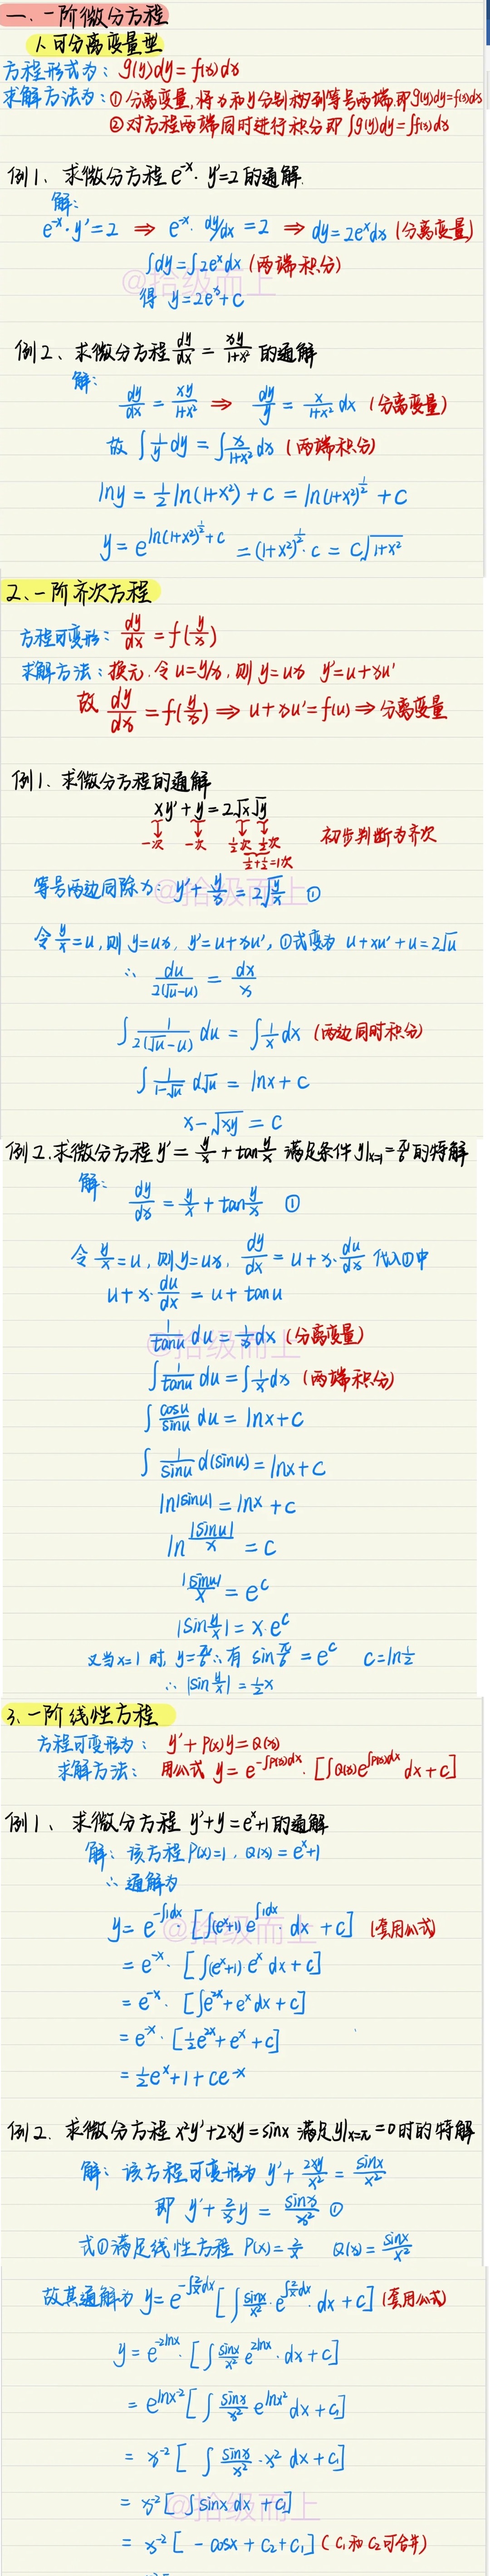 一. 一阶微分方程
1. 可分离变量型
方程形式为: g(y)dy = f(x)dx
求解方法为: ① 分离变量, 将x和y分别移到等号两端, 即g(y)dy=f(x)dx
② 对方程两端同时进行积分即 ∫g(y)dy=∫f(x)dx
例1、求微分方程 e^{-x}·y'=2 的通解.
解:
e^{-x}·y'=2 ⇒ e^{-x}·dy/dx=2 ⇒ dy=2e^x dx (分离变量)
∫dy=∫2e^x dx (两端积分)
@拾级而上
得 y=2e^x+C
例2、求微分方程 dy/dx = xy/(1+x²) 的通解
解:
dy/dx = xy/(1+x²) ⇒ dy/y = x/(1+x²) dx (分离变量)
故 ∫1/y dy = ∫x/(1+x²) dx (两端积分)
lny = ½ln(1+x²)+C = ln(1+x²)^{½}+C
y = e^{ln(1+x²)^{½}+C} = (1+x²)^{½}·C = C√(1+x²)
2、一阶齐次方程
方程可变形: dy/dx = f(y/x)
求解方法: 换元. 令u=y/x, 则y=ux y'=u+xu'
故 dy/dx = f(y/x) ⇒ u+xu'=f(u) ⇒ 分离变量
例1、求微分方程的通解
xy'+y=2√x√y
一次 一次 ½次 ½次 初步判断为齐次
½+½=1次
等号两边同除x: y'+y/x=2√(y/x) ①
@拾级而上
令y/x=u, 则y=ux, y'=u+xu', ①式变为 u+xu'+u=2√u
∴ du/(2(√u-u)) = dx/x
∫1/(2(√u-u)) du = ∫1/x dx (两边同时积分)
∫1/(1-√u) d√u = lnx+C
x-√(xy) = C
例2. 求微分方程 y'=y/x+tan y/x 满足条件 y|_{x=1}=π/6 的特解
解: dy/dx = y/x + tan y/x ①
令y/x=u, 则y=ux, dy/dx=u+x·du/dx 代入①中
u+x·du/dx = u+tanu
1/tanu du = 1/x dx (分离变量)
@拾级而上
∫1/tanu du = ∫1/x dx (两端积分)
∫cosu/sinu du = lnx+C
∫1/sinu d(sinu) = lnx+C
ln|sinu| = lnx+C
ln |sinu|/x = C
|sinu|/x = e^C
|sin y/x| = x·e^C
又当x=1时, y=π/6 ∴有 sin π/6 = e^C C=ln½
∴ |sin y/x| = ½x
3. 一阶线性方程
方程可变形为: y'+P(x)y=Q(x)
求解方法: 用公式 y=e^{-∫P(x)dx}·[∫Q(x)e^{∫P(x)dx} dx+C]
例1、求微分方程 y'+y=e^x+1 的通解
解: 该方程P(x)=1, Q(x)=e^x+1
∴ 通解为
y=e^{-∫1dx}·[∫(e^x+1)e^{∫1dx}·dx+C] (套用公式)
@拾级而上
=e^{-x}·[∫(e^x+1)·e^x dx+C]
=e^{-x}·[∫e^{2x}+e^x dx+C]
=e^{-x}·[½e^{2x}+e^x+C]
=½e^x+1+Ce^{-x}
例2. 求微分方程 x²y'+2xy=sinx 满足y|_{x=π}=0时的特解
解: 该方程可变形为 y'+2xy/x²=sinx/x²
即 y'+2/x y = sinx/x² ①
式①满足线性方程 P(x)=2/x Q(x)=sinx/x²
故其通解为 y=e^{-∫2/x dx}[∫sinx/x²·e^{∫2/x dx}·dx+C] (套用公式)
y=e^{-2lnx}·[∫sinx/x² e^{2lnx}·dx+C]
=e^{lnx^{-2}}[∫sinx/x² e^{lnx²}dx+C₁]
=x^{-2}[∫sinx/x²·x² dx+C₁]
=x^{-2}[∫sinx dx+C₁]
@拾级而上
=x^{-2}[-cosx+C₂+C₁] (C₁和C₂可合并)